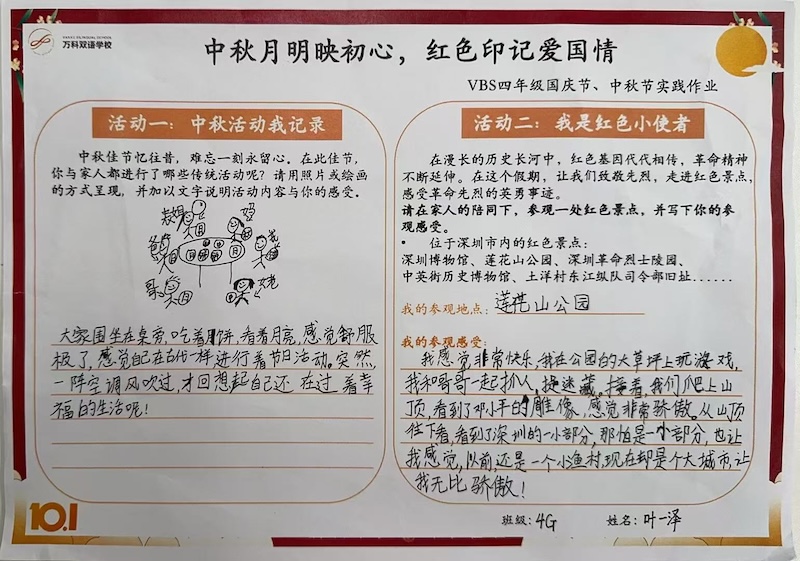 VANKE BILINGUAL SCHOOL
万科双语学校
中秋月明映初心，红色印记爱国情
VBS四年级国庆节、中秋节实践作业
活动一：中秋活动我记录
中秋佳节忆往昔，难忘一刻永留心。在此佳节，
你与家人都进行了哪些传统活动呢？请用照片或绘画
的方式呈现，并加以文字说明活动内容与你的感受。
爸
我
哥
姥
大家围坐在桌旁,吃着月饼,看着月亮,感觉舒服
极了,感觉自己在古代一样进行着节日活动。突然,
一阵空调风吹过,才回想起自己还在过着幸
福的生活呢!
活动二：我是红色小使者
在漫长的历史长河中，红色基因代代相传，革命精神
不断延伸。在这个假期，让我们致敬先烈，走进红色景点，
感受革命先烈的英勇事迹。
请在家人的陪同下，参观一处红色景点，并写下你的参
观感受。
• 位于深圳市内的红色景点：
深圳博物馆、莲花山公园、深圳革命烈士陵园、
中英街历史博物馆、土洋村东江纵队司令部旧址......
我的参观地点：莲花山公园
我的参观感受：
我感觉非常快乐,我在公园的大草坪上玩游戏,
我和哥哥一起抓人,捉迷藏。接着,我们爬上山
顶,看到了邓小平的雕像,感觉非常骄傲。从山顶
往下看,看到了深圳的一小部分,那怕是一小部分,也让
我感觉,以前,还是一个小渔村,现在却是个大城市,让
我无比骄傲!
10.1
班级：4G 姓名：叶一泽